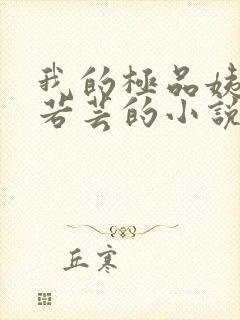 我的極品姨
若芸的小說
丘寒